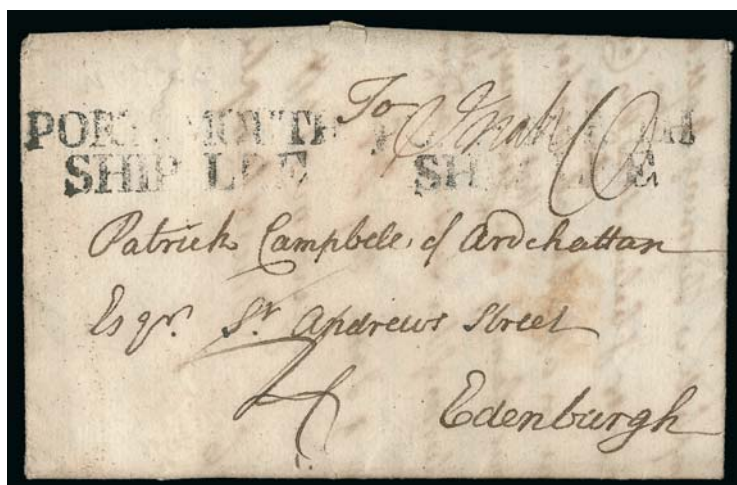 To
PORTSMOUTH
SHIP LRE
SHIP LRE
Patrick Campbele, of Ardchattan
Esqr. St. Andrews Street
Edenburgh